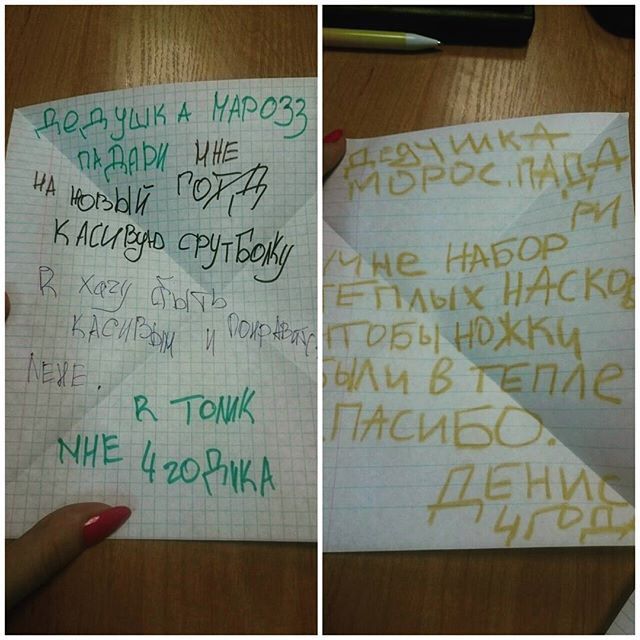 ДЕДУШКА МАРОЗЗ
ПАДАРИ МНЕ
НА НОВЫЙ ГОТД
КАСИВУЮ СРУТБОЛКУ
Я ХАЧУ БЫТЬ
КАСИВЫМ И
ЛЕНЕ.
Я ТОЛИК
МНЕ 4 ГОДИКА
ДЕДУШКА
МОРОС. ПАДА
РИ
МНЕ НАБОР
ТЕПЛЫХ НАСКОВ
ЧТОБЫ НОЖКИ
БЫЛИ В ТЕПЛЕ
СПАСИБО.
ДЕНИС
4 ГОДА